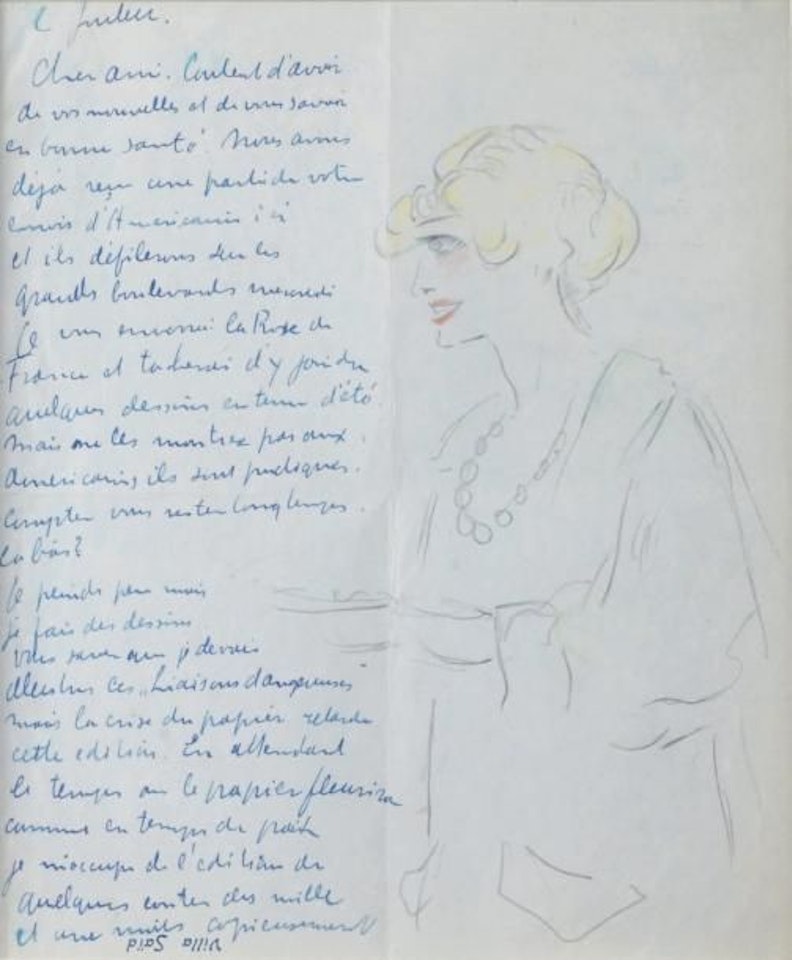 Juillet.
Cher ami. Content d'avoir
de vos nouvelles et de vous savoir
en bonne santé. Nous avons
déjà reçu une partie de votre
envois d'Américains ici
et ils défilerons sur les
grands boulevards mercredi
Je vous enverrai la Rose de
France et tacherai d'y joindre
quelques dessins en tenue d'été
mais ne les montrez pas aux
Américains, ils sont pudiques.
Comptez vous rester longtemps
la bas?
Je peinds peu mais
je fais des dessins
vous savez que je devais
illustrer les "Liaisons dangereuses"
mais la crise du papier retarde
cette edition. En attendant
le temps ou le papier fleurira
comme en temps de paix
je m'occupe de l'edition de
quelques contes des mille
et une nuits copieusement
Villa Saïd